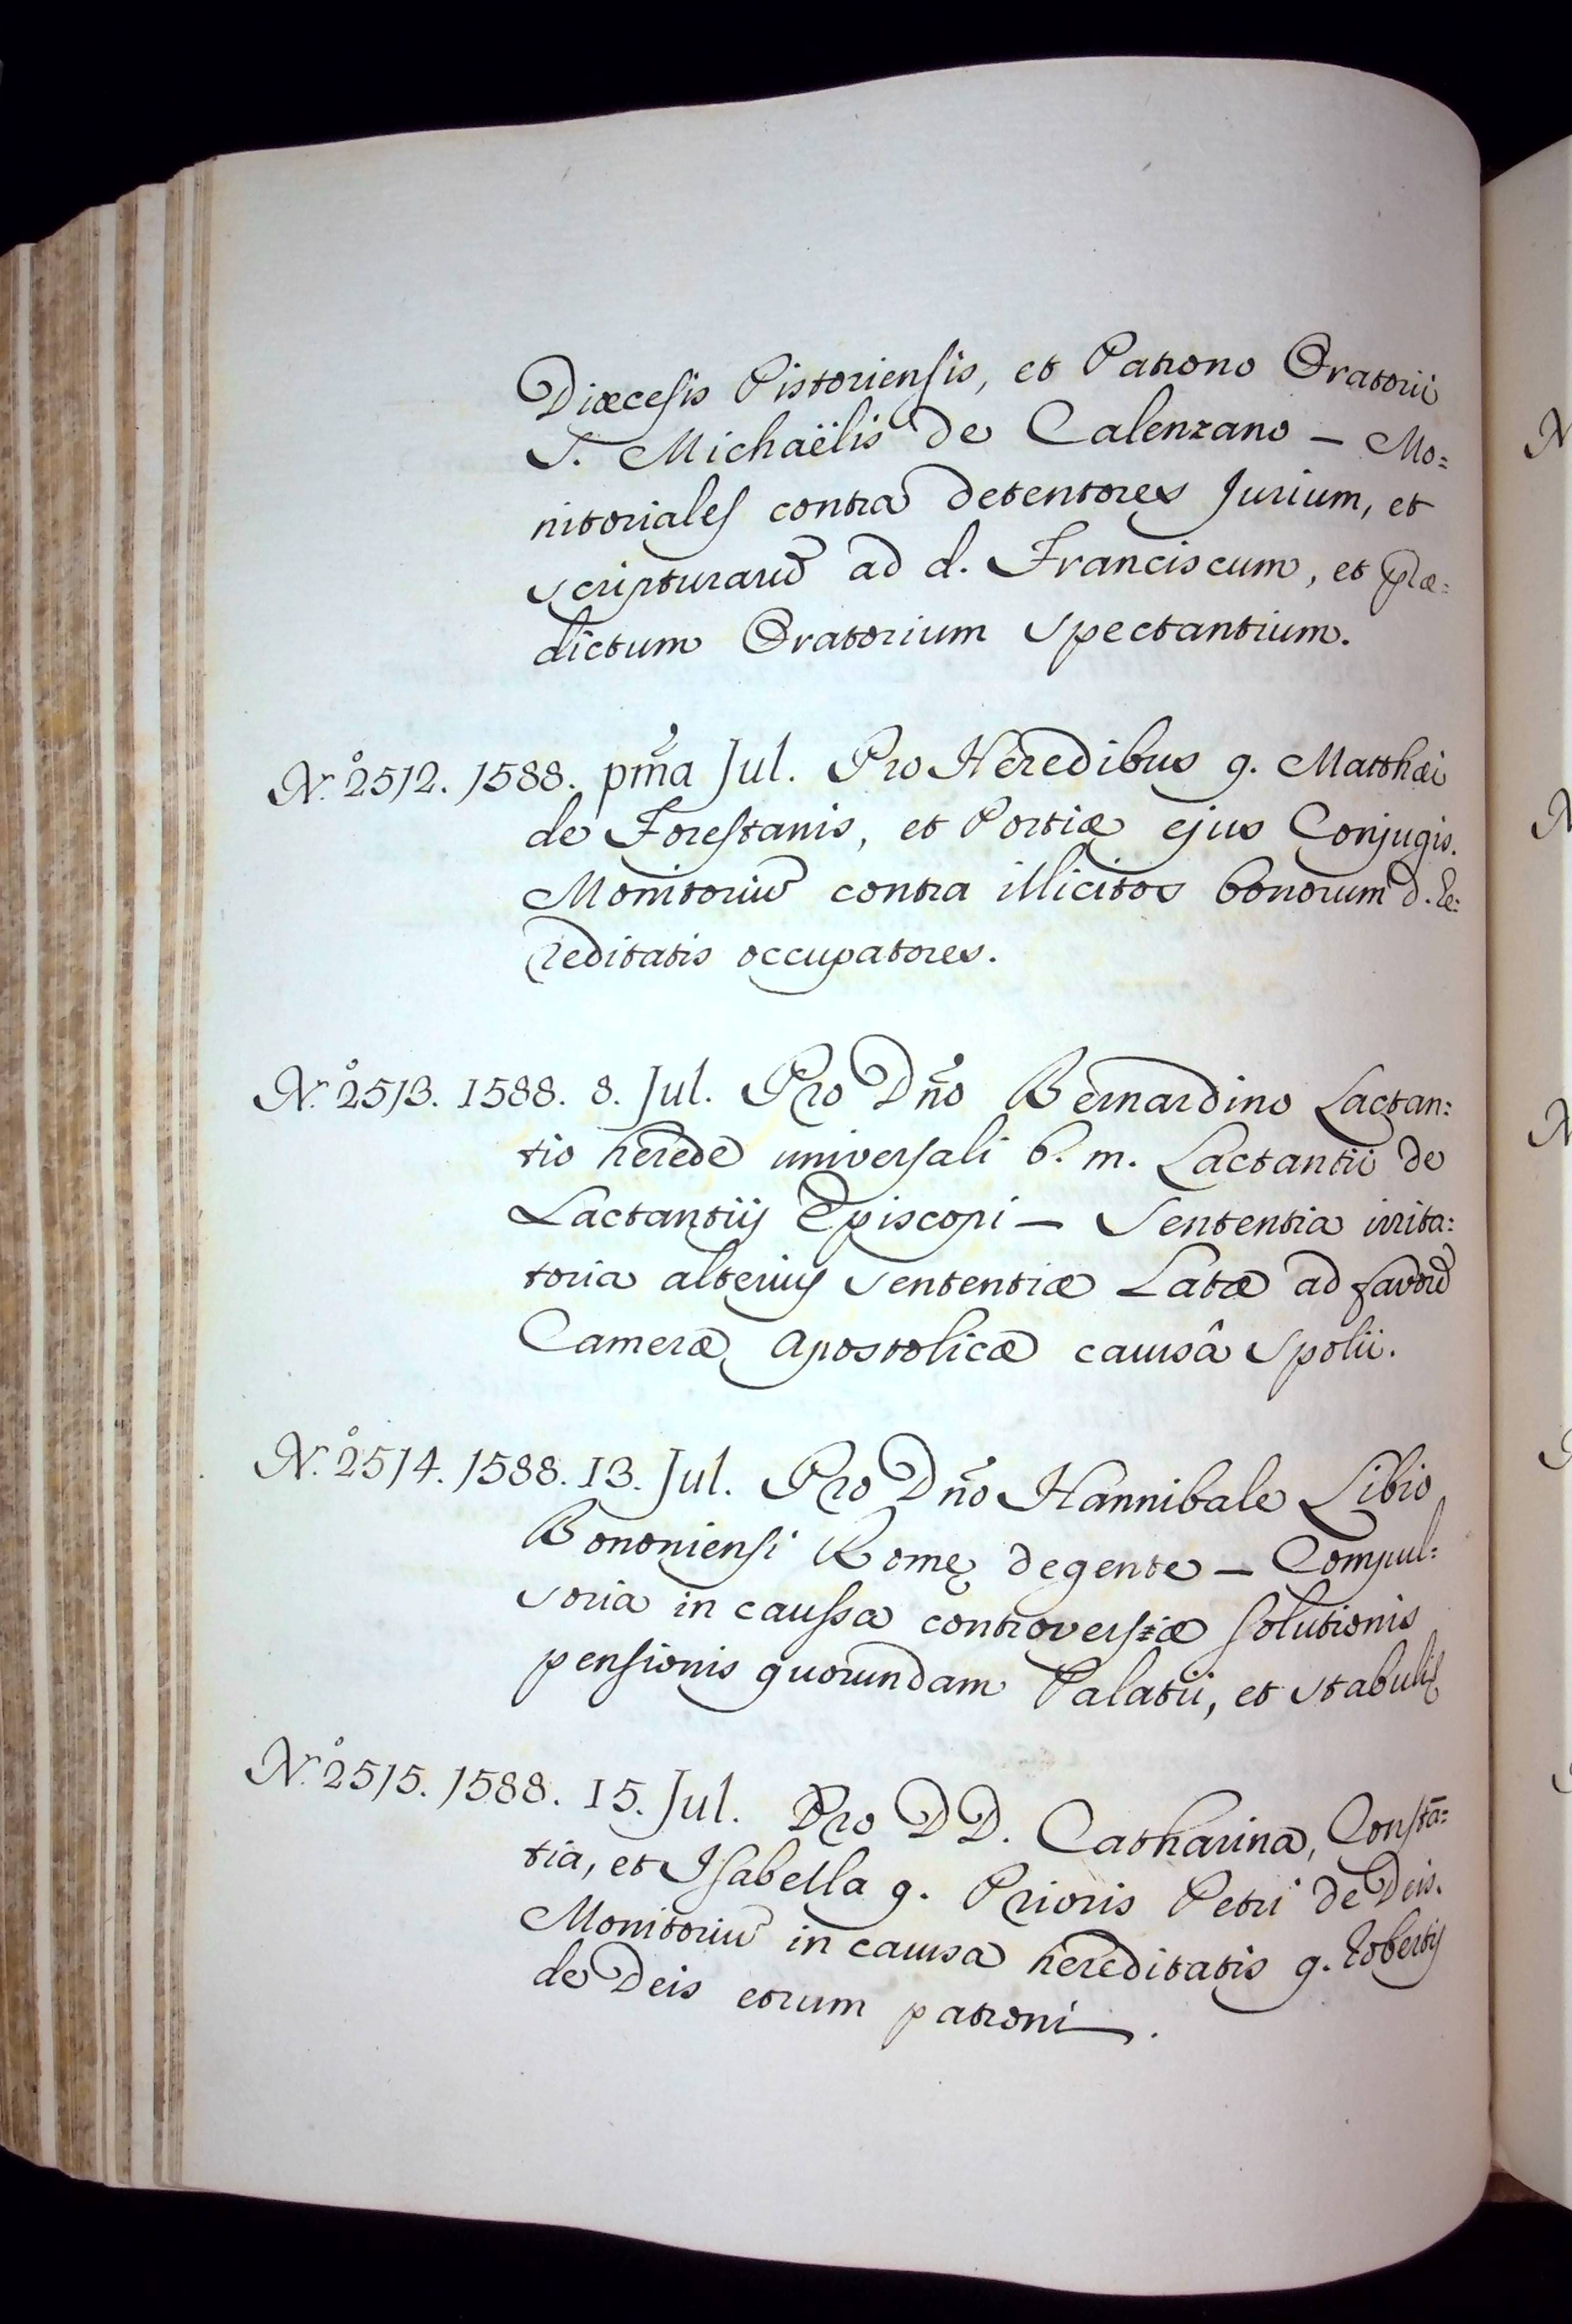 Diœcesis Pistoriensis, et Patrono Oratorii
S. Michaëlis de Calenzano – Mo=
nitoriales contra detentores Jurium, et
scripturarũ ad d. Franciscum, et præ=
dictum Oratorium spectantium.
N.º 2512. 1588. pm̃a Jul. Pro Heredibus q. Matthæi
de Forestanis, et Portiæ ejus Conjugis.
Monitoriũ contra illicitos bonorum d. he=
reditatis occupatores.
N.º 2513. 1588. 8. Jul. Pro Dño Bernardino Lactan=
tio herede universali b. m. Lactantii de
Lactantiis Episcopi – Sententia irrita=
toria alterius sententiæ Latæ ad favorẽ
Cameræ Apostolicæ causâ Spolii.
N.º 2514. 1588. 13. Jul. Pro Dño Hannibale Libio
Bononiensi Romę degente – Compul=
soria in caussa controversiæ solutionis
pensionis quorundam Palatii, et stabulis
N.º 2515. 1588. 15. Jul. Pro DD. Catharina, Constã=
tia, et Isabella q. Prioris Petri de Deis.
Monitoriũ in causa hereditatis q.
de Deis etrum patroni.